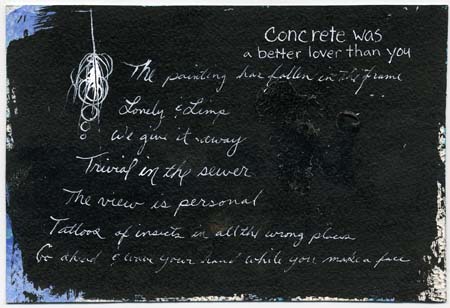 Concrete was
a better lover than you
The painting has fallen in the frame
...
Lonely & Limp
We give it away
Trivial in the sewer
The view is personal
Tattoos of insects in all the wrong places
Go ahead & wave your hand while you make a face